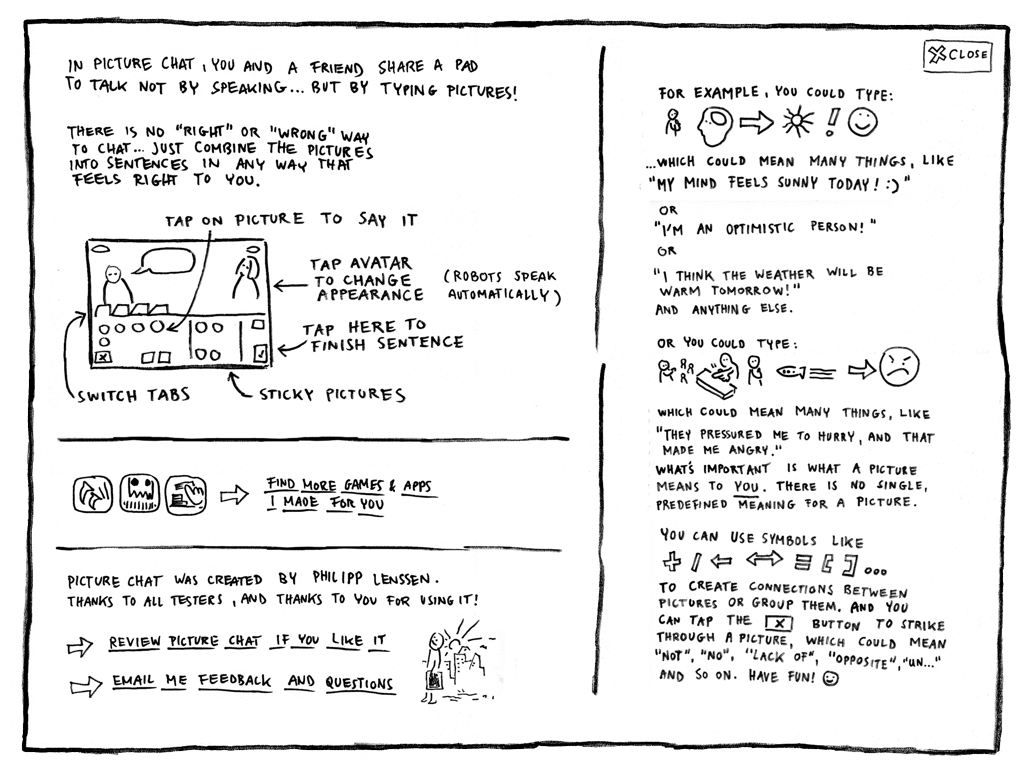 IN PICTURE CHAT, YOU AND A FRIEND SHARE A PAD
TO TALK NOT BY SPEAKING... BUT BY TYPING PICTURES!
THERE IS NO "RIGHT" OR "WRONG" WAY
TO CHAT... JUST COMBINE THE PICTURES
INTO SENTENCES IN ANY WAY THAT
FEELS RIGHT TO YOU.
TAP ON PICTURE TO SAY IT
TAP AVATAR
TO CHANGE
APPEARANCE
(ROBOTS SPEAK
AUTOMATICALLY)
TAP HERE TO
FINISH SENTENCE
SWITCH TABS
STICKY PICTURES
FIND MORE GAMES & APPS
I MADE FOR YOU
PICTURE CHAT WAS CREATED BY PHILIPP LENSSEN.
THANKS TO ALL TESTERS, AND THANKS TO YOU FOR USING IT!
REVIEW PICTURE CHAT IF YOU LIKE IT
EMAIL ME FEEDBACK AND QUESTIONS
CLOSE
FOR EXAMPLE, YOU COULD TYPE:
...WHICH COULD MEAN MANY THINGS, LIKE
"MY MIND FEELS SUNNY TODAY! :)"
OR
"I'M AN OPTIMISTIC PERSON!"
OR
"I THINK THE WEATHER WILL BE
WARM TOMORROW!"
AND ANYTHING ELSE.
OR YOU COULD TYPE:
WHICH COULD MEAN MANY THINGS, LIKE
"THEY PRESSURED ME TO HURRY, AND THAT
MADE ME ANGRY."
WHAT'S IMPORTANT IS WHAT A PICTURE
MEANS TO YOU. THERE IS NO SINGLE,
PREDEFINED MEANING FOR A PICTURE.
YOU CAN USE SYMBOLS LIKE
TO CREATE CONNECTIONS BETWEEN
PICTURES OR GROUP THEM. AND YOU
CAN TAP THE X BUTTON TO STRIKE
THROUGH A PICTURE, WHICH COULD MEAN
"NOT", "NO", "LACK OF", "OPPOSITE", "UN..."
AND SO ON. HAVE FUN! ☺